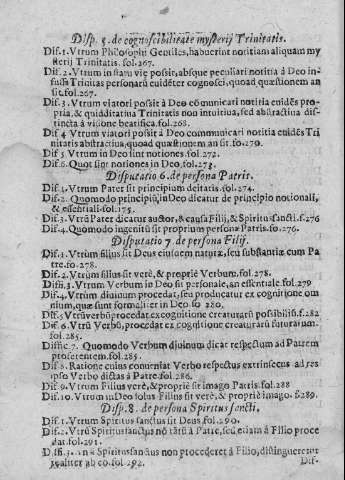 Disp. 5. de cognoscibilitate mysterij Trinitatis.
Dif. 1. Vtrum Philosophi Gentiles, habuerint notitiam aliquam my
sterij Trinitatis. fol. 267.
Dif. 2. Vtrum in statu vię possit, absque peculiari notitia à Deo in-
fusa Trinitas personarũ euidẽter cognosci, quoad quæstionem an
sit. fol. 267.
Dif. 3. Vtrum viatori possit à Deo cõmunicari notitia euidẽs pro-
pria, & quidditatiua Trinitatis non intuitiua, sed abstractiua di-
stincta à visione beatifica fol. 268.
Dif. 4 Vtrum viatori possit à Deo communicari notitia euidẽs Tri
nitatis abstractiua, quoad quæstionem an sit. fo. 270.
Dif. 5 Vtrum in Deo sint notiones. fol. 272.
Dif. 6. Quot sint notiones in Deo fol. 273.
Disputatio 6. de persona Patris.
Dif. 1. Vtrum Pater sit principium deitatis. fol. 274.
Dif. 2. Quomodo principiũ in Deo dicatur de principio notionali,
& essentiali fol. 275.
Dif. 3. Vtrũ Pater dicatur auctor, & causa Filij, & Spiritus sancti. f. 276
Dif. 4. Quomodo ingenitũ sit proprium persona Patris. fo. 276.
Disputatio 7. de persona Filij.
Dif. 1. Vtrum filius sit Deus eiusdem naturæ, seu substantiæ cum Pa
tre. fo. 278.
Dif. 2. Vtrum filius sit verè, & propriè Verbum. fol. 278.
Diffi. 3. Vtrum Verbum in Deo sit personale, an essentiale. fol. 279
Dif. 4. Vtrum diuinum procedat, seu producatur ex cognitione om
nium, quæ sunt formaliter in Deo. fo. 280.
Dif. 5 Vtrũ verbũ procedat ex cognitione creaturarũ possibiliũ. f. 282
Dif. 6. Vtrũ Verbũ, procedat ex cognitione creaturarũ futurarum.
fol. 285.
Diffic. 7. Quomodo Verbum diuinum dicat respectum ad Patrem
proferentem. fol. 285.
Dif 8. Ratione cuius conueniat Verbo respectus extrinsecus ad res
ipso Verbo dictas à Patre. fol. 286.
Dif. 9. Vtrum Filius verè, & propriè sit imago Patris. fol. 288
Dif. 10. Vtrum in Deo solus Filius sit verè, & propriè imago. f. 289.
Disp. 8. de persona Spiritus sancti.
Dif. 1. Vtrum Spiritus sanctus sit Deus fol. 290.
Dif. 2. Vtrũ Spiritus sanctus nõ tãtũ à Patre, sed etiam à Filio proce
dat. fol. 291.
Dif. 3. Vtrum Spiritus sanctus non procederet à Filio, distingueretur
realiter ab eo. fol. 292.
Dif.